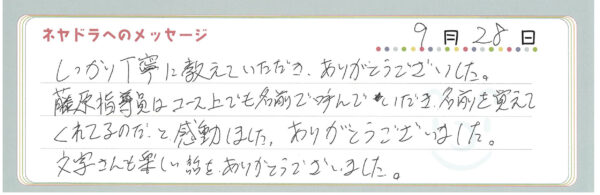 ネヤドラへのメッセージ
9月28日
しっかり丁寧に教えていただき、ありがとうございました。
藤原指導員はコース上でも名前で呼んでいただき、名前を覚えて
くれてるのだと感動しました。ありがとうございました。
文字さんも楽しい絵を、ありがとうございました。